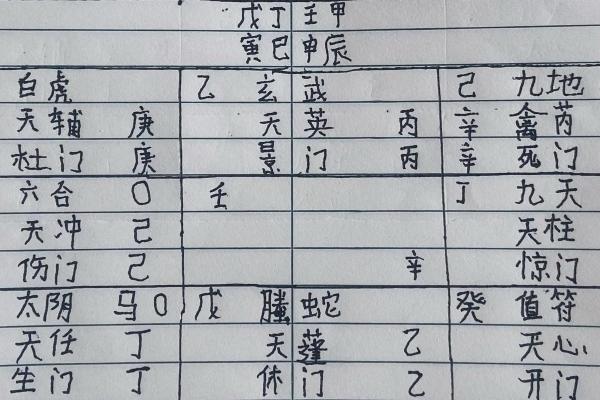 戊丁壬甲
寅巳申辰
白虎 乙 玄武 己 九地
天辅 庚 天英 丙 辛 禽芮
杜门 庚 景门 丙 辛 死门
六合 O 壬 丁 九天
天冲 己 天柱
伤门 己 辛 惊门
太阴 马O 戊 螣蛇 癸 值符
天任 丁 天蓬 乙 天心
生门 丁 休门 乙 开门